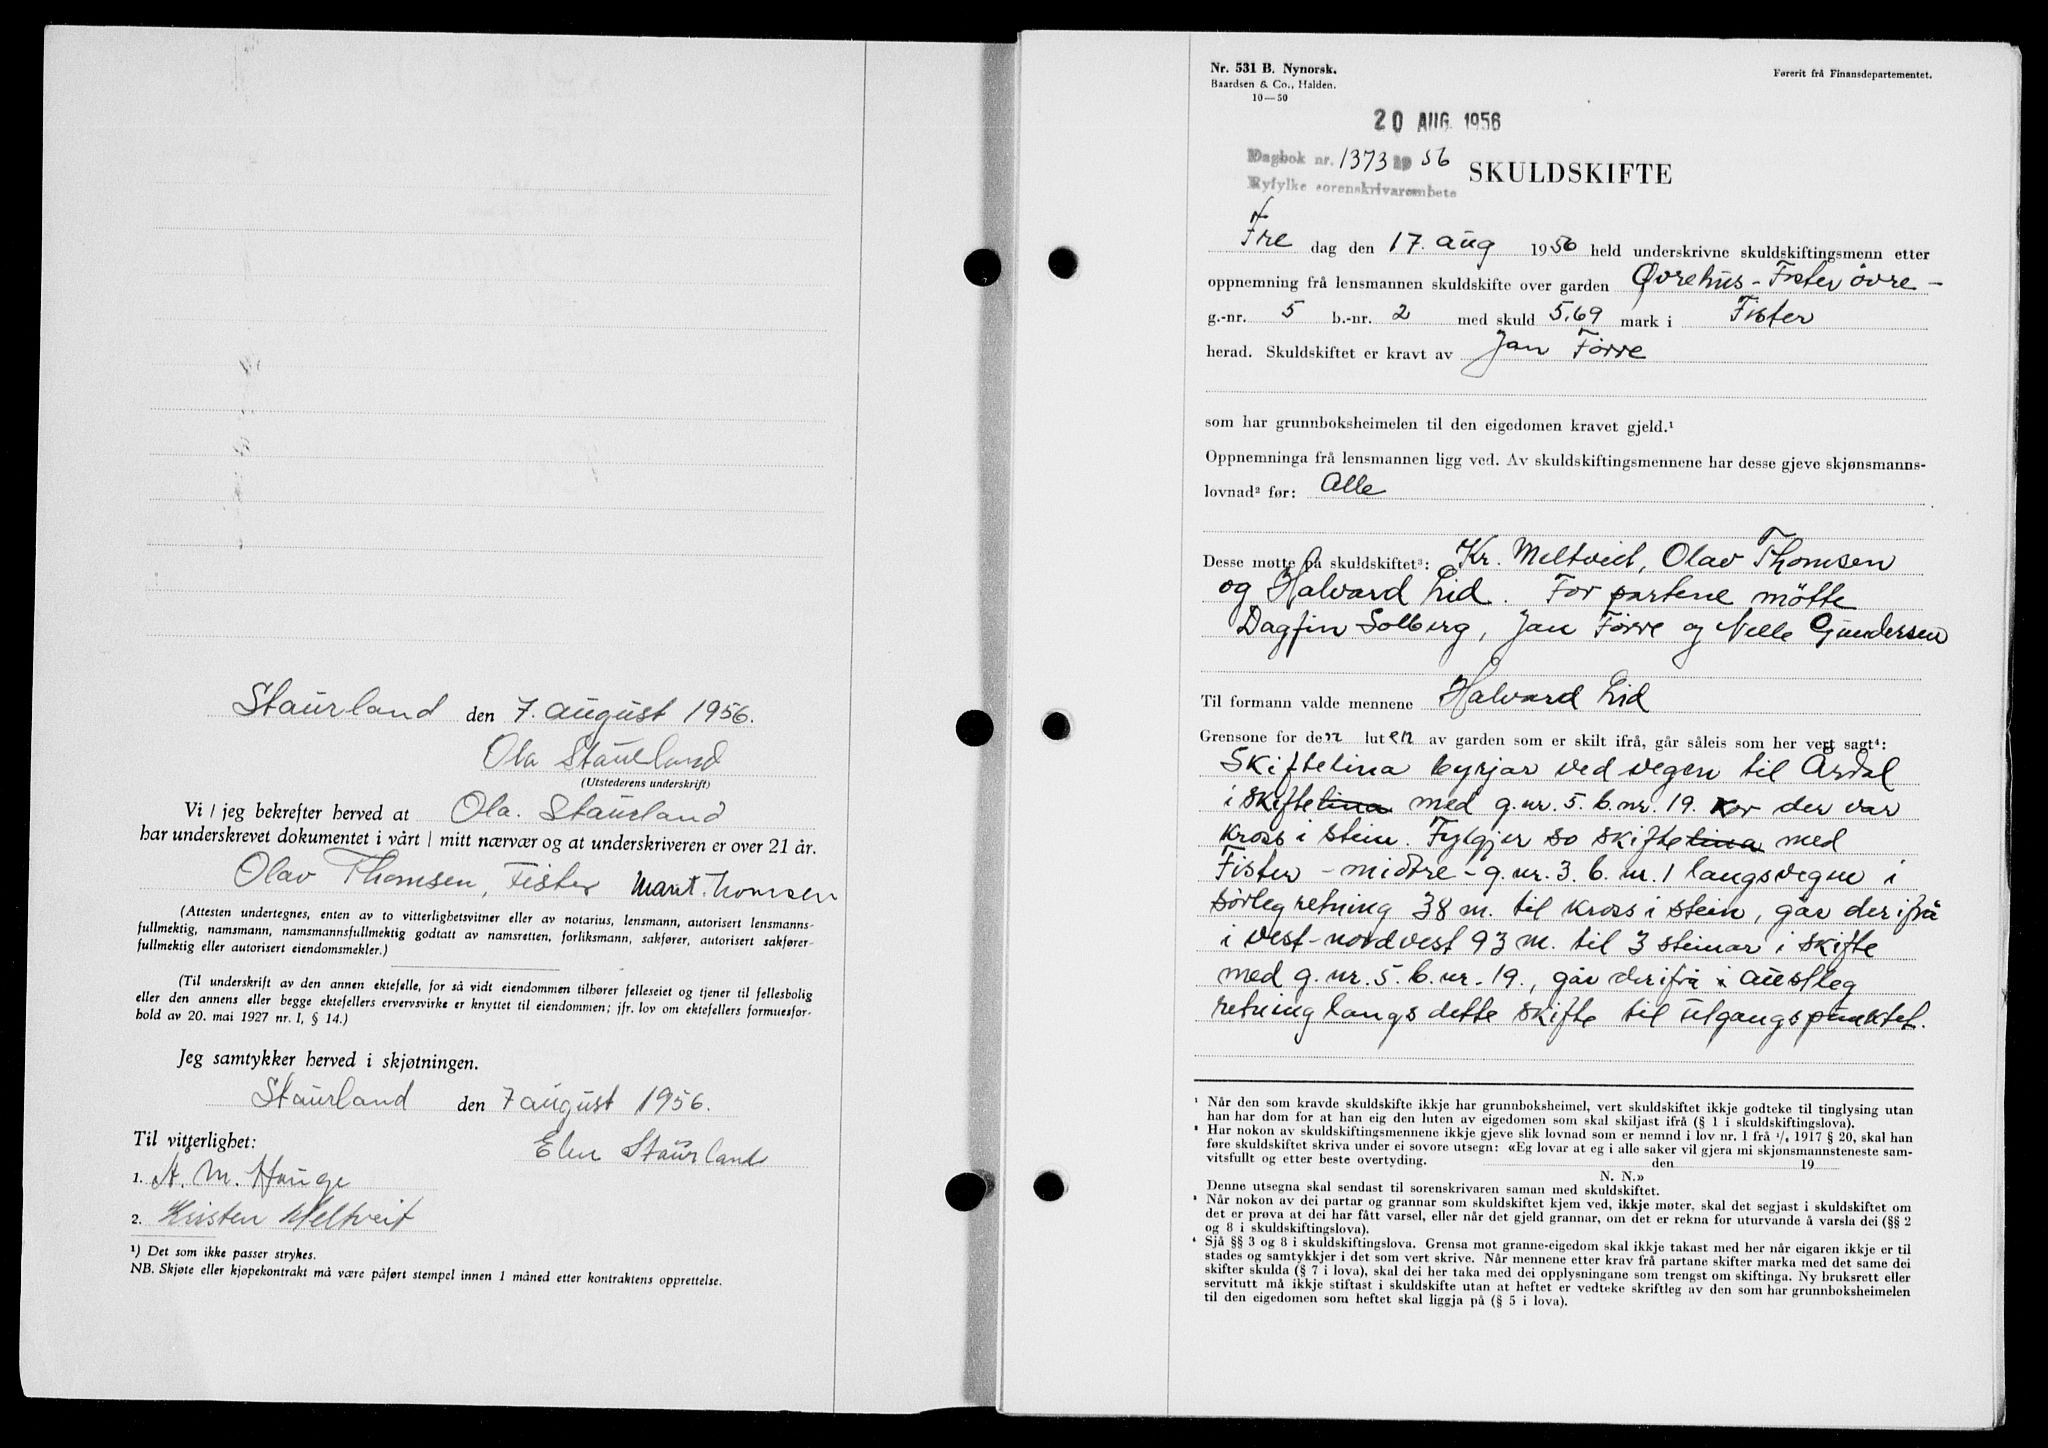 Staurland den 7. august 1956.
Ola Staurland
(Utstederens underskrift)
Vi / jeg bekrefter herved at Ola. Staurland
har underskrevet dokumentet i vårt / mitt nærvær og at underskriveren er over 21 år.
Olav Thomsen, Fister Marit Thomsen
(Attesten undertegnes, enten av to vitterlighetsvitner eller av notarius, lensmann, autorisert lensmanns-
fullmektig, namsmann, namsmannsfullmektig godtatt av namsretten, forliksmann, sakfører, autorisert sakfører-
fullmektig eller autorisert eiendomsmekler.)
(Til underskrift av den annen ektefelle, for så vidt eiendommen tilhører felleseiet og tjener til fellesbolig
eller den annens eller begge ektefellers ervervsvirke er knyttet til eiendommen; jfr. lov om ektefellers formuesfor-
hold av 20. mai 1927 nr. 1, § 14.)
Jeg samtykker herved i skjøtningen.
Staurland den 7 august 1956.
Til vitterlighet:
Elen Staurland
1. A. M. Hauge
2. Kristen Meltveit
¹) Det som ikke passer strykes.
NB. Skjøte eller kjøpekontrakt må være påført stempel innen 1 måned etter kontraktens opprettelse.
Nr. 531 B. Nynorsk.
Baardsen & Co., Halden.
10—50
Førerit frå Finansdepartementet.
20 AUG. 1956
Dagbok nr. 1373 19 56
Ryfylke sorenskrivarembete
SKULDSKIFTE
Fre dag den 17. aug 1956 held underskrivne skuldskiftingsmenn etter
oppnemning frå lensmannen skuldskifte over garden Øvrehus - Fister øvre -
g.-nr. 5 b.-nr. 2 med skuld 5,69 mark i Fister
herad. Skuldskiftet er kravt av Jan Førre
som har grunnboksheimelen til den eigedomen kravet gjeld.¹
Oppnemninga frå lensmannen ligg ved. Av skuldskiftingsmennene har desse gjeve skjønsmanns-
lovnad² før: Alle
Desse møtte på skuldskiftet³: Kr. Meltveit, Olav Thomsen
og Halvard Lid. For partene møtte
Dagfin Solberg, Jan Førre og Nelle Gundersen
Til formann valde mennene Halvard Lid
Grensone for den luten av garden som er skilt ifrå, går såleis som her vert sagt⁴:
Skiftelina byrjar ved vegen til Årdal
i skiftelina med g.nr. 5. b.nr. 19. kor der var
kross i stein. Fylgjer so skiftelina med
Fister - midtre - g.nr. 3. b. nr. 1 langsvegne i
sørleg retning 38 m. til kross i stein, går derifrå
i vest-nordvest 93 m. til 3 steinar i skifte
med g.nr. 5. b.nr. 19., går derifrå i austleg
retning langs dette skifte til utgangspunktet.
¹ Når den som kravde skuldskifte ikkje har grunnboksheimel, vert skuldskiftet ikkje godteke til tinglysing utan
han har dom for at han eig den luten av eigedomen som skal skiljast ifrå (§ 1 i skuldskiftingslova).
² Har nokon av skuldskiftingsmennene ikkje gjeve slik lovnad som er nemnd i lov nr. 1 frå ¹/₆ 1917 § 20, skal han
føre skuldskiftet skriva under ei sovore utsegn: «Eg lovar at eg i alle saker vil gjera mi skjønsmannsteneste sam-
vitsfullt og etter beste overtyding. den 19
N. N.»
Denne utsegna skal sendast til sorenskrivaren saman med skuldskiftet.
³ Når nokon av dei partar og grannar som skuldskiftet kjem ved, ikkje møter, skal det segjast i skuldskiftet om
det er prøva at dei har fått varsel, eller når det gjeld grannar, om det er rekna for uturvande å varsla dei (§§ 2
og 8 i skuldskiftingslova).
⁴ Sjå §§ 3 og 8 i skuldskiftingslova. Grensa mot granne-eigedom skal ikkje takast med her når eigaren ikkje er til
stades og samtykkjer i det som vert skrive. Når mennene etter krav frå partane skifter marka med det same dei
skifter skulda (§ 7 i lova), skal dei her taka med dei opplysningane som trengst om skiftinga. Ny bruksrett eller
servitutt må ikkje stiftast i skuldskifte utan at heftet er vedteke skriftleg av den som har grunnboksheimelen
til den eigedomen som heftet skal liggja på (§ 5 i lova).